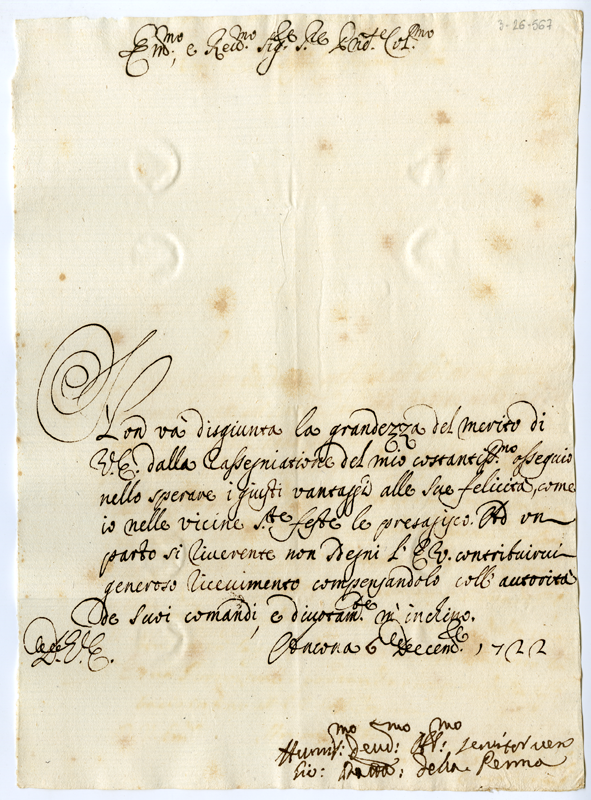 3-26-567
Em.mo, e Reu.mo Sig.re S.re Prōne Col.mo
Non và disgiunta la grandezza del merito di
V.E. dalla rassegniatione del mio costantis.mo ossequio
nello sperare i giusti vantaggi alle sue felicità, come
io nelle vicine S.te feste le presagisco. Ad un
parto si riuerente non sdegni l'E.V. contribuirui
generoso riceuimento compensandolo coll' autorità
de suoi comandi, e diuotam.te m' inchino.
D. V. E. Ancona 6 Decem.re 1722
Humil.mo Deuo.mo Obb.mo seruitor uero
Gio: Batta: della Penna